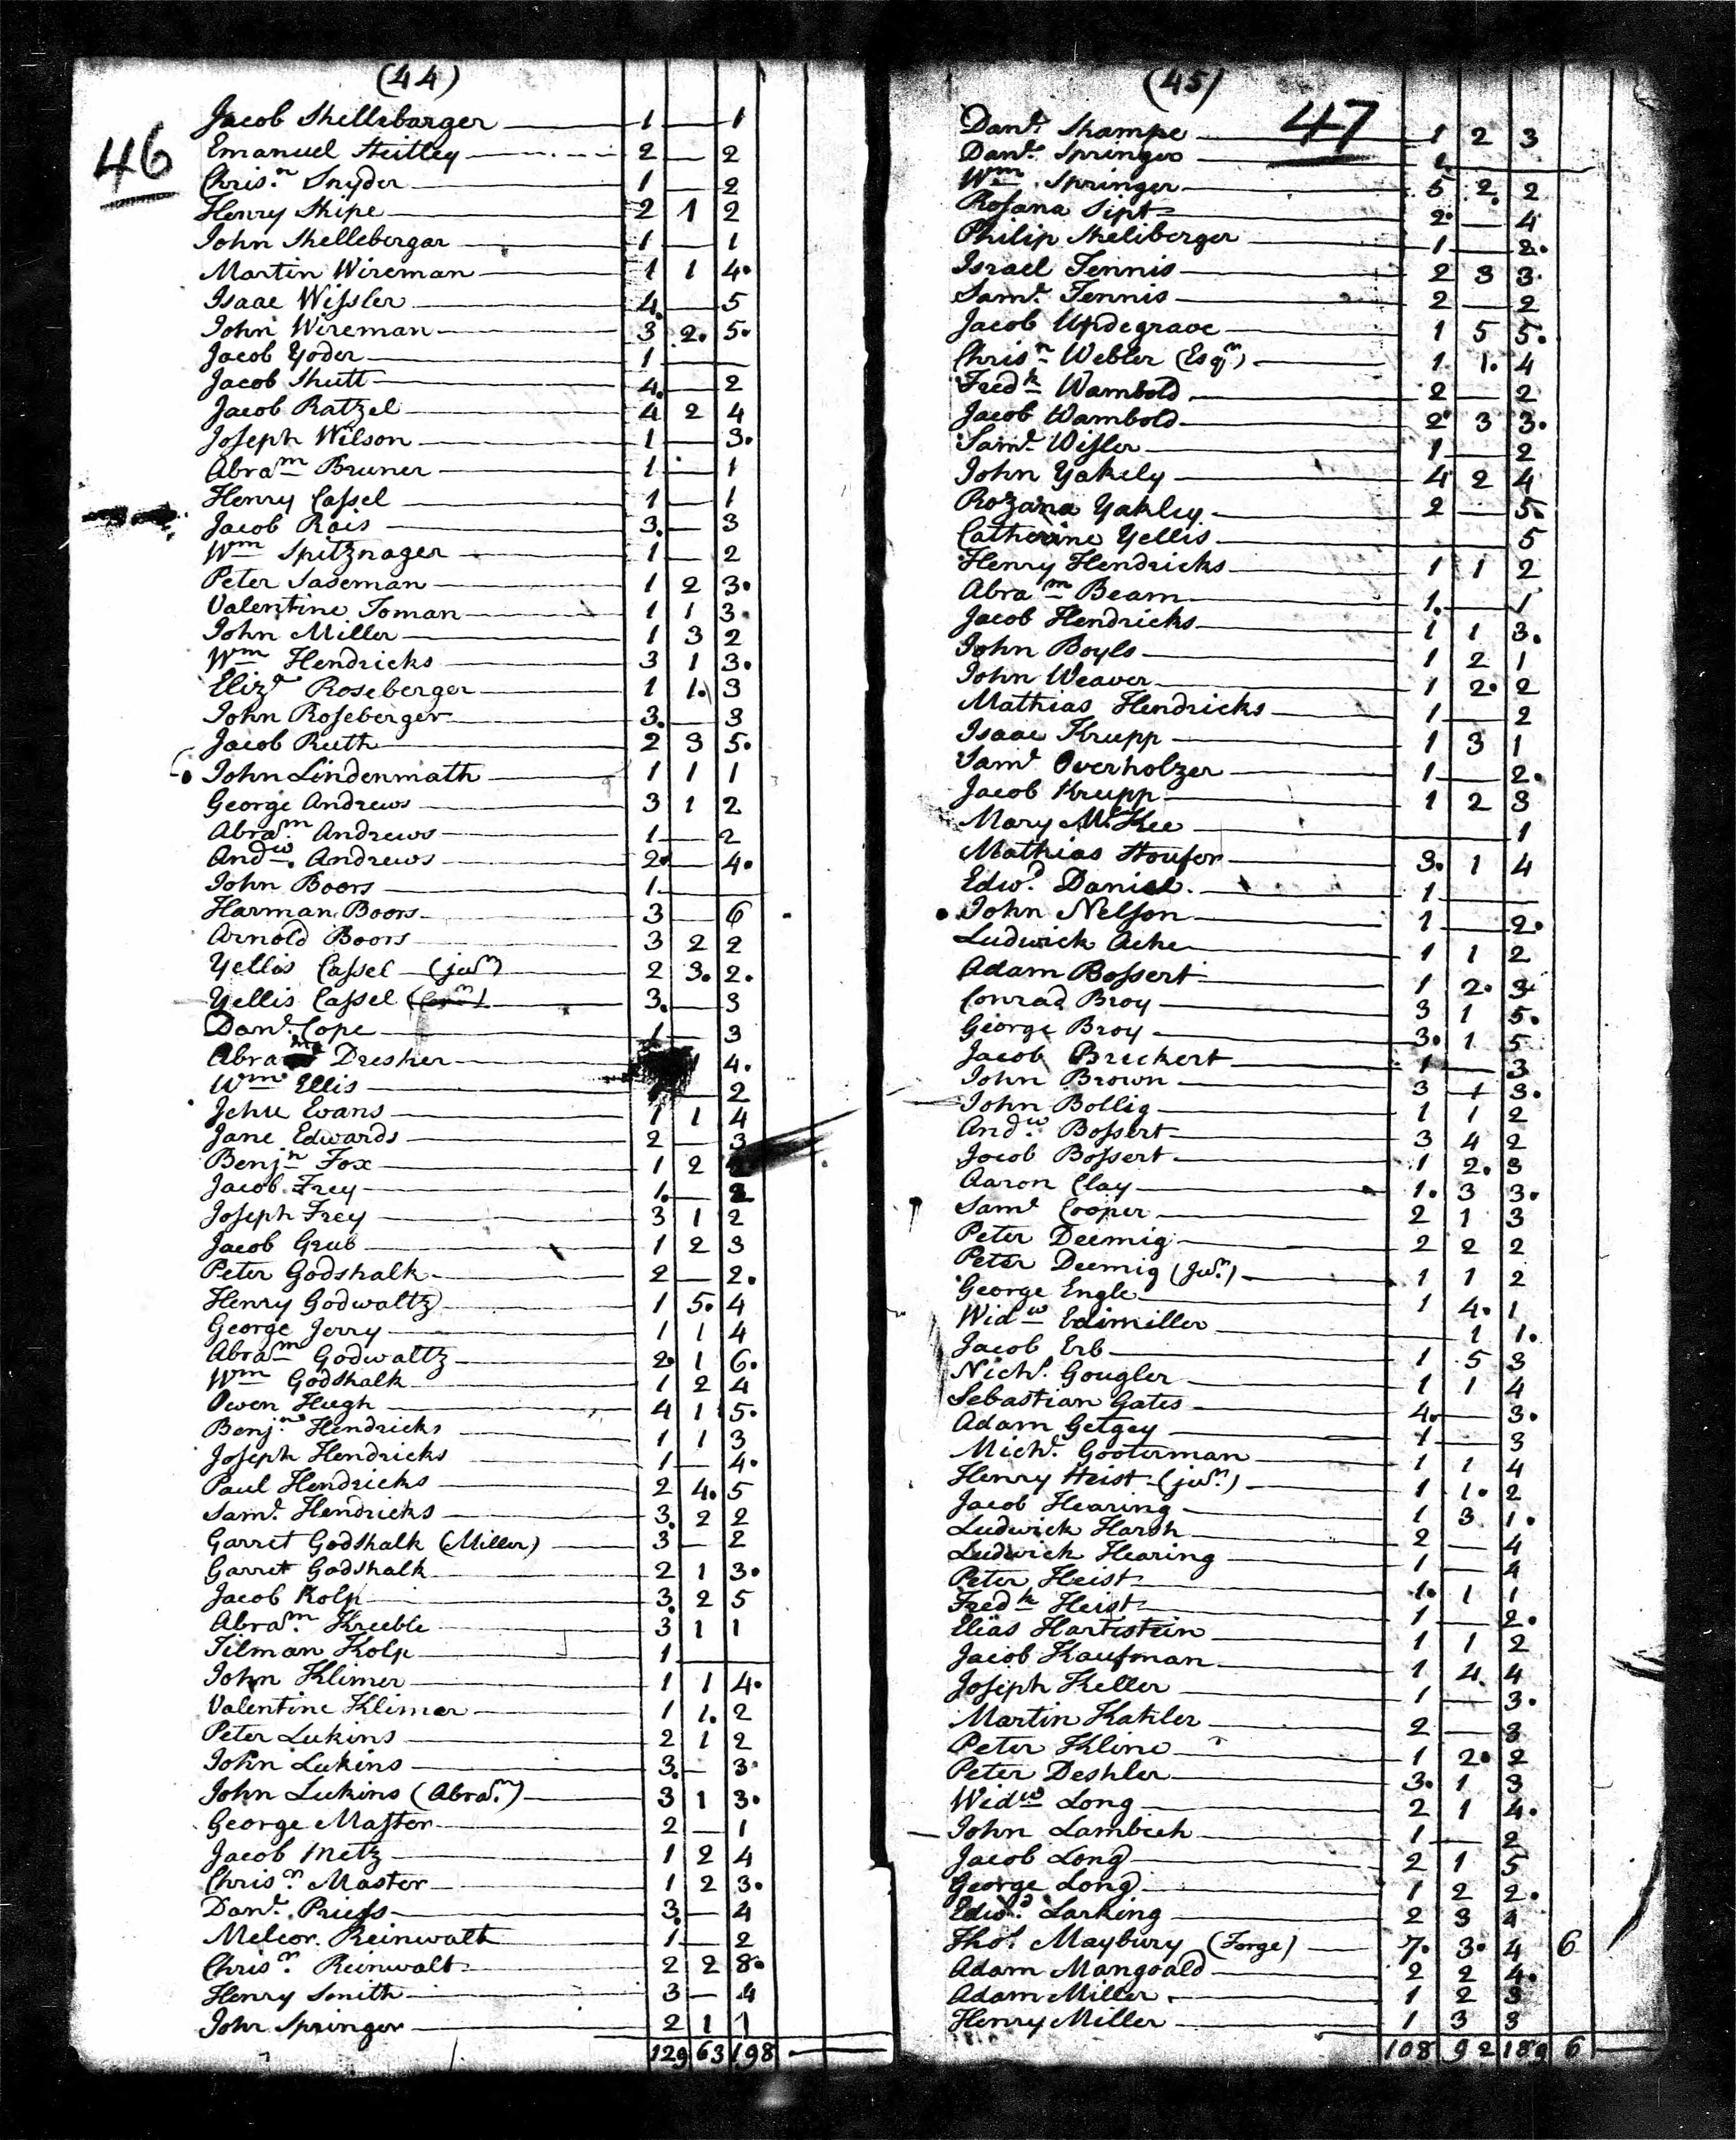 (44)
46
Jacob Shellebarger 1 — 1
Emanuel Steitley 2 — 2
Chris.n Snyder 1 — 2
Henry Shipe 2 1 2
John Shellebergar 1 — 1
Martin Wireman 1 1 4.
Isaac Wissler 4. — 5
John Wireman 3 2. 5.
Jacob Yoder 1 — —
Jacob Shutt 4. — 2
Jacob Ratzel 4 2 4
Joseph Wilson 1 — 3.
Abra.m Bruner 1 — 1
Henry Cassel 1 — 1
Jacob Rais 3. — 3
Wm Spitznager 1 — 2
Peter Sademan 1 2 3.
Valentine Toman 1 1 3.
John Miller 1 3 2
Wm Hendricks 3 1 3.
Eliz.a Roseberger 1 1. 3
John Roseberger 3. — 3
Jacob Ruth 2 3 5.
John Lindenmath 1 1 1
George Andrews 3 1 2
Abra.m Andrews 1 — 2
And.w Andrews 2. — 4.
John Boors 1 — —
Harman Boors 3 — 6
Arnold Boors 3 2 2
Yellis Cassel (jun.r) 2 3. 2.
Yellis Cassel 3. — 3
Dan.l Cope 1 — 3
Abra.m Dresher 1 4.
Wm Ellis — 2
Jehu Evans 1 1 4
Jane Edwards 2 — 3
Benj.n Fox 1 2
Jacob Frey 1. — 2
Joseph Frey 3 1 2
Jacob Grub 1 2 3
Peter Godshalk 2 — 2.
Henry Godwaltz 1 5. 4
George Jerry 1 1 4
Abra.m Godwaltz 2. 1 6.
Wm Godshalk 1 2 4
Owen Hugh 4 1 5.
Benj.n Hendricks 1 1 3
Joseph Hendricks 1 — 4.
Paul Hendricks 2 4. 5
Sam.l Hendricks 3. 2 2
Garret Godshalk (Miller) 3 — 2
Garret Godshalk 2 1 3.
Jacob Kolp 3. 2 5
Abra.m Kreeble 3 1 1
Tilman Kolp 1 — —
John Klimer 1 1 4.
Valentine Klimer 1 1. 2
Peter Lukins 2 1 2
John Lukins 3. — 3.
John Lukins (Abra.m) 3 1 3.
George Master 2 — 1
Jacob Metz 1 2 4
Chris.n Master 1 2 3.
Dan.l Priess 3. — 4
Melcor Reinwalt 1 — 2
Chris.n Reinwalt 2 2 8.
Henry Smith 3 — 4
John Springer 2 1 1
129 63 198
(45)
47
Dan.l Shampe 1 2 3
Dan.l Springer 1 — —
Wm Springer 5 2. 2
Rosana Sipt 2. — 4
Philip Sheliberger 1 — 2.
Israel Tennis 2 3 3.
Sam.l Tennis 2 — 2
Jacob Updegrave 1 5 5.
Chris.n Webler (Esq.r) 1 1. 4
Fred.k Wambold 2 — 2
Jacob Wambold 2. 3 3.
Sam.l Wisler 1 — 2
John Yakely 4 2 4
Rozana Yakley 2 — 5.
Catherine Yellis — — 5
Henry Hendricks 1 1 2
Abra.m Beam 1. — 1
Jacob Hendricks 1 1 3.
John Boyls 1 2 1
John Weaver 1 2. 2
Mathias Hendricks 1 — 2
Isaac Krupp 1 3 1
Sam.l Overholzer 1 — 2.
Jacob Krupp 1 2 3
Mary McKee — — 1
Mathias Houfer 3. 1 4
Edw.d Daniel 1 — —
John Nelson 1 — 2.
Ludwick Ache 1 1 2
Adam Bossert 1 2. 3
Conrad Broy 3 1 5.
George Broy 3. 1 5
Jacob Breckert 1 — 3
John Brown 3 1 3.
John Bollig 1 1 2
And.w Bossert 3 4 2
Jacob Bossert 1 2. 3
Aaron Clay 1. 3 3.
Sam.l Cooper 2 1 3
Peter Deemig 2 2 2
Peter Deemig (Jun.r) 1 1 2
George Engle 1 4. 1
Wid.w Edimiller — 1 1.
Jacob Erb 1 5 3
Nich.s Gougler 1 1 4
Sebastian Gates 4. — 3.
Adam Getgey 1 — 3
Mich.l Gooterman 1 1 4
Henry Heist (jun.r) 1 1. 2
Jacob Hearing 1 3 1.
Ludwick Harsh 2 — 4
Ludwick Hearing 1 — 4
Peter Heist 1. 1 1
Fred.k Heist 1 — 2.
Elias Hartistein 1 1 2
Jacob Kaufman 1 4. 4
Joseph Keller 1 — 3.
Martin Kahler 2 — 3
Peter Kline 1 2. 2
Peter Deshler 3. 1 3
Wid.w Long 2 1 4.
John Lambech 1 — 2
Jacob Long 2 1 5
George Long 1 2 2.
Edw.d Larking 2 3 4
Tho.s Maybury (Forge) 7. 3. 4 6
Adam Mangoald 2 2 4.
Adam Miller 1 2 3
Henry Miller 1 3 3
108 92 189 6